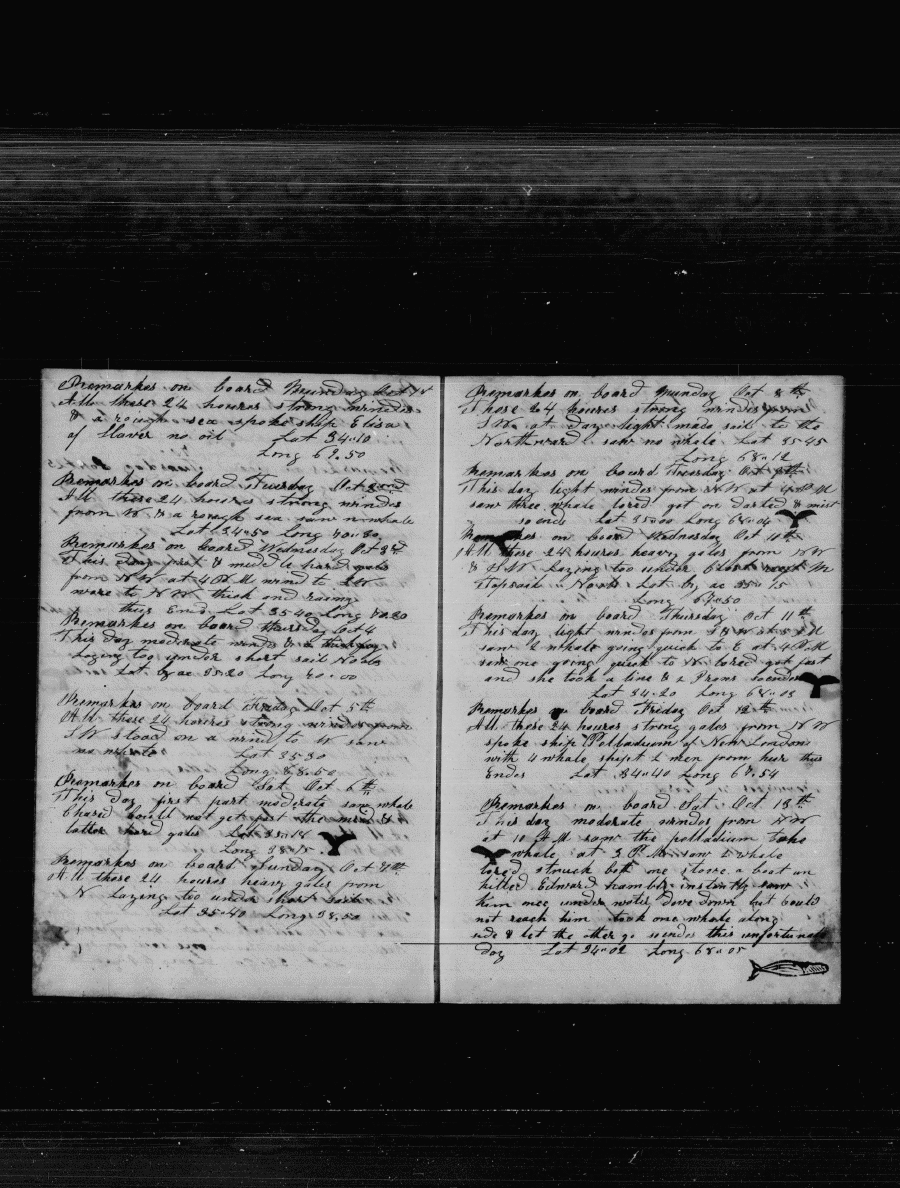 Remarkes on board Munday Oct 1st
All these 24 houres strong windes
& a rough sea spoke ship Eliza
of Haver no oil Lat 34"10
Long 69.50
Remarkes on board Tuesday Oct 2nd
All these 24 houres strong windes
from W & a rough sea saw no whale
Lat 34"50 Long 70"30
Remarkes on board Wednesday Oct 3rd
This day first & middle hard gales
from NW at 4 PM wind to SW
ware to NW thick and rainy
thus Ends Lat 35 40 Long 70.20
Remarkes on board Thursday Oct 4
This day moderate winds & a
Laying too under short sail
Lat by ac 35.20 Long 70.00
Remarkes on board Friday Oct 5th
All these 24 houres strong windes from
SW stood on a wind to W saw
no whale Lat 35.30
Long 68.50
Remarkes on board Sat Oct 6th
This day first part moderate saw whale
Chased could not get fast the wind &
latter hard gales Lat 35"18
Long 38"75
Remarkes on board Sunday Oct 7th
All these 24 houres heavy gales from
N Laying too under short sail
Lat 35"40 Long 38,50
Remarkes on board Munday Oct 8th
These 24 houres strong windes from
SW at day light made sail to the
Northward saw no whale Lat 35"45
Long 68"12
Remarkes on board Tuesday Oct 9th
This day light windes from NW at 4 PM
saw three whale lored got on darted & mist
so ends Lat 35"00 Long 68"04
Remarkes on board Wednesday Oct 10th
All these 24 houres heavy gales from NW
& SW Laying too under Close reeft M
Topsail Lat by ac 35"15
Long 67"50
Remarkes on board Thursday Oct 11th
This day light windes from
saw 2 whale going quick to E at 4 PM
saw one going quick to N. lored got fast
and she took a line & 2 so ends
Lat 34.20 Long 68"03
Remarkes on board Friday Oct 12th
All these 24 houres strong gales from NW
spoke ship Palladium of New London
with 4 whale shipt 2 men from hur thus
Endes Lat 34"40 Long 67.54
Remarkes on board Sat Oct 13th
This day moderate windes from NW
at 10 AM saw the palladium take
whale at 3 PM saw 2 whale
lored struck both one stove a boat an
killed Edward hambly instantly saw
him once under water Dove down but could
not reach him took one whale along
side & let the other go so endes this unfortunate
day Lat 34"02 Long 68"05